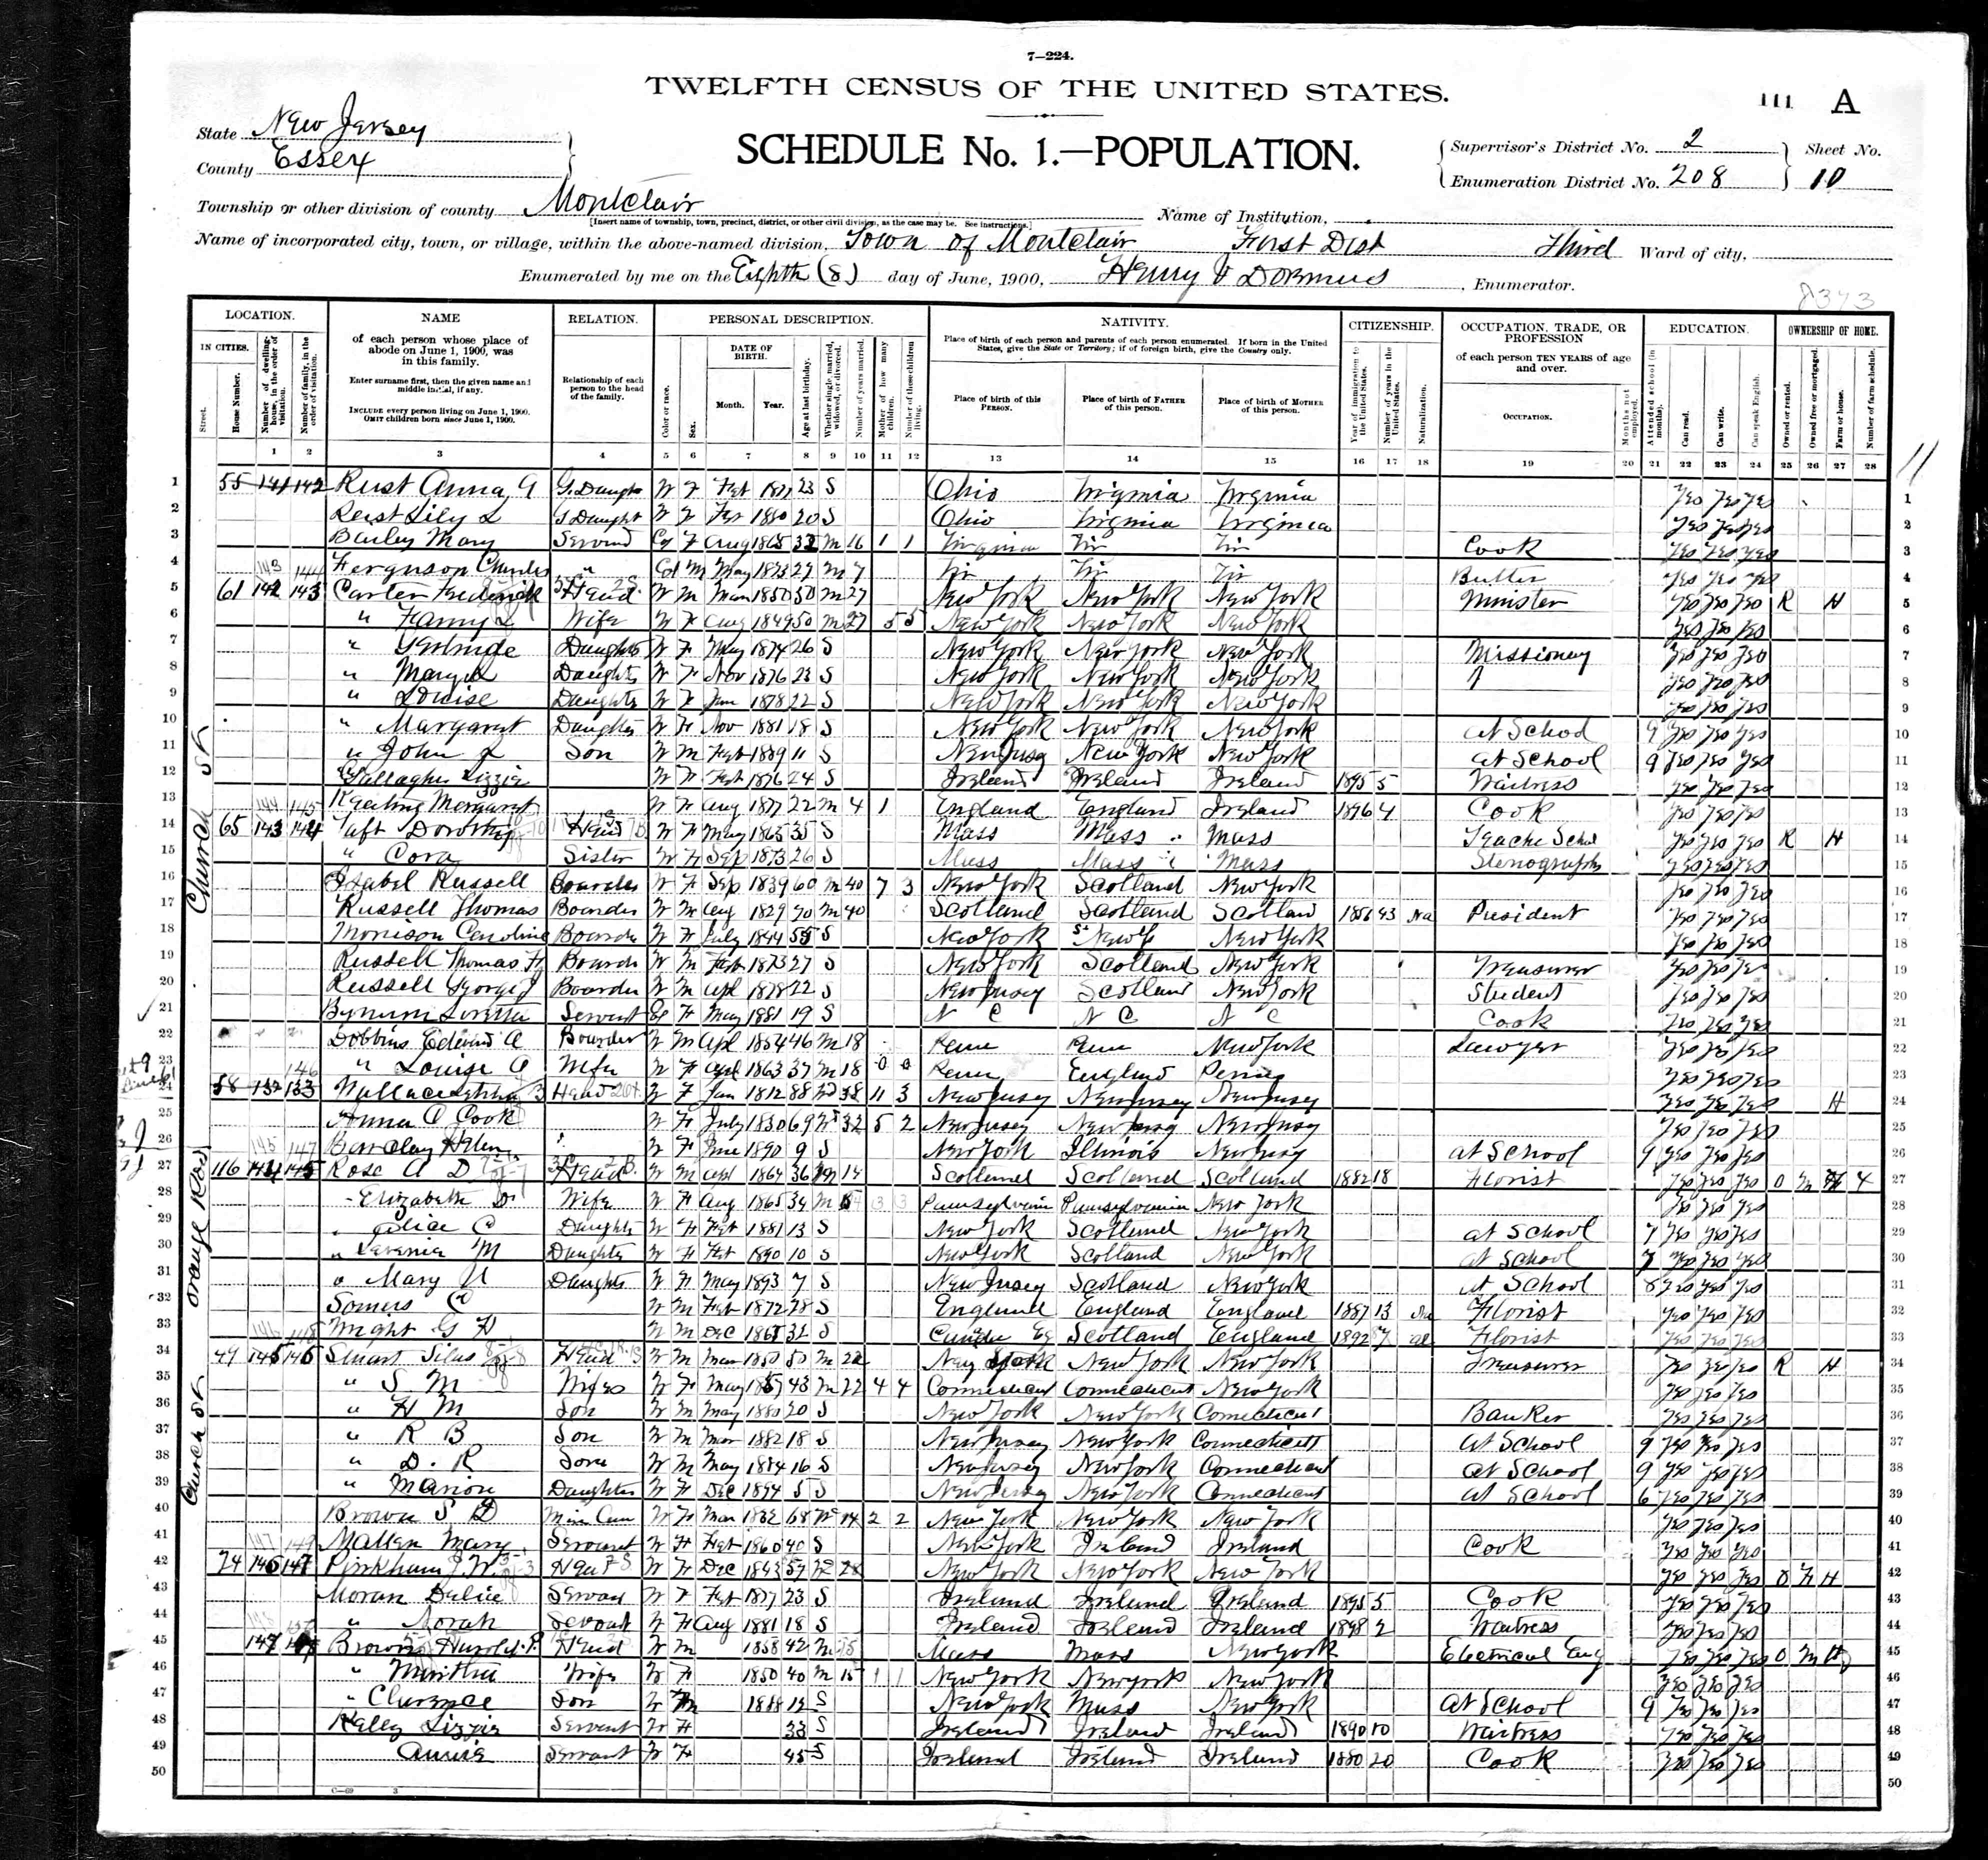 7—224.
TWELFTH CENSUS OF THE UNITED STATES.
111 A
State New Jersey
County Essex
SCHEDULE No. 1.—POPULATION.
Supervisor's District No. 2 Sheet No.
Enumeration District No. 208 10
Township or other division of county Montclair Name of Institution,
[Insert name of township, town, precinct, district, or other civil division, as the case may be. See instructions.]
Name of incorporated city, town, or village, within the above-named division, Town of Montclair First Dist Third Ward of city,
Enumerated by me on the Eighth (8) day of June, 1900, Henry Dormus, Enumerator.
8373
LOCATION. NAME RELATION. PERSONAL DESCRIPTION. NATIVITY. CITIZENSHIP. OCCUPATION, TRADE, OR PROFESSION EDUCATION. OWNERSHIP OF HOME.
IN CITIES. of each person whose place of abode on June 1, 1900, was in this family.
Enter surname first, then the given name and middle initial, if any.
INCLUDE every person living on June 1, 1900. OMIT children born since June 1, 1900.
Relationship of each person to the head of the family.
DATE OF BIRTH. Month. Year.
Place of birth of each person and parents of each person enumerated. If born in the United States, give the State or Territory; if of foreign birth, give the Country only.
Place of birth of this PERSON. Place of birth of FATHER of this person. Place of birth of MOTHER of this person.
of each person TEN YEARS of age and over.
OCCUPATION.
Street. House Number. Number of dwelling-house, in the order of visitation. Number of family, in the order of visitation. Color or race. Sex. Age at last birthday. Whether single, married, widowed, or divorced. Number of years married. Mother of how many children. Number of these children living. Year of immigration to the United States. Number of years in the United States. Naturalization. Months not employed. Attended school (in months). Can read. Can write. Can speak English. Owned or rented. Owned free or mortgaged. Farm or house. Number of farm schedule.
1 2 3 4 5 6 7 8 9 10 11 12 13 14 15 16 17 18 19 20 21 22 23 24 25 26 27 28
11
Church St
1 55 141 142 Rust Anna G. Daught W F Feb 1877 23 S Ohio Virginia Virginia Yes Yes Yes 1
2 Rust Lily L G Daught W F Feb 1880 20 S Ohio Virginia Virginia Yes Yes Yes 2
3 Bailey Mary Servand F Aug M 16 1 1 Virginia Vir Vir Cook Yes Yes Yes 3
4 Ferguson Charles " Col M May 1873 27 M 7 Vir Vir Vir Butler Yes Yes Yes 4
5 61 142 143 Carter Frederick Head W M Mar 1850 50 M 27 New York New York New York Minister Yes Yes Yes R H 5
6 " Fanny L Wife W F Aug 1849 50 M 27 5 5 New York New York New York Yes Yes Yes 6
7 " Gertrude Daughter W F May 1874 26 S New York New York New York Missionary Yes Yes Yes 7
8 " Mary Daughter W F Nov 1876 23 S New York New York New York Yes Yes Yes 8
9 " Louise Daughter W F Jan 1878 22 S New York New York New York Yes Yes Yes 9
10 " Margaret Daughter W F Nov 1881 18 S New York New York New York at School 9 Yes Yes Yes 10
11 " John L Son W M Feb 1889 11 S New Jersey New York New York at School 9 Yes Yes Yes 11
12 Gallagher Lizzie W F Feb 1876 24 S Ireland Ireland Ireland 1895 5 Waitress Yes Yes Yes 12
13 Keating Margaret W F Aug 1877 22 M 4 1 England England Ireland 1896 4 Cook Yes Yes Yes 13
14 65 143 144 Taft Dorothy Head W F May 1865 35 S Mass Mass Mass Teache School Yes Yes Yes R H 14
15 " Cora Sister W F Sep 1873 26 S Mass Mass Mass Stenographer Yes Yes Yes 15
16 Isabel Russell Boarder W F Sep 1839 60 M 40 7 3 New York Scotland New York Yes Yes Yes 16
17 Russell Thomas Boarder W M Aug 1829 70 M 40 Scotland Scotland Scotland 1856 43 Na President Yes Yes Yes 17
18 Morrison Caroline Boarder W F July 1844 55 S New York New York Yes Yes Yes 18
19 Russell Thomas Boarder W M Feb 1873 27 S New York Scotland New York Treasurer Yes Yes Yes 19
20 Russell George J Boarder W M Apl 1878 22 S New Jersey Scotland New York Student Yes Yes Yes 20
21 Bynum Loretta Servant F May 1881 19 S N C N C N C Cook Yes Yes Yes 21
22 Dobbins Edward A Boarder W M Apl 1854 46 M 18 Penn Penn New York Lawyer Yes Yes Yes 22
23 " Louise A Wife W F Apl 1863 37 M 18 0 0 Penn England Penn Yes Yes Yes 23
24 58 132 133 Wallace Head W F Jan 1812 88 Wd 58 11 3 New Jersey New Jersey New Jersey Yes Yes Yes H 24
25 Anna C Cook W F July 1830 69 Wd 32 5 2 New Jersey New Jersey New Jersey Yes Yes Yes 25
26 Barclay Helen W F June 1890 9 S New York Illinois New Jersey at School 9 Yes Yes Yes 26
Orange Road
27 116 144 145 Rose A D Head W M Apl 1864 36 M 14 Scotland Scotland Scotland 1882 18 Florist Yes Yes Yes O M 4 27
28 Elizabeth D Wife W F Aug 1865 34 M 3 3 Pennsylvania Pennsylvania New York Yes Yes Yes 28
29 " Alice C Daughter W F Feb 13 S New York Scotland New York at School 7 Yes Yes Yes 29
30 " M Daughter W F Feb 1890 10 S New York Scotland New York at School 7 Yes Yes Yes 30
31 " Mary Daughter W F May 1893 7 S New Jersey Scotland New York at School 8 Yes Yes Yes 31
32 Somers C W M Feb 1872 28 S England England England 1887 13 Na Florist Yes Yes Yes 32
33 Wright G H W M Dec 32 S Scotland England 1892 Al Florist Yes Yes Yes 33
Church St
34 49 145 146 Stuart Silas Head W M Mar 1850 50 M 22 New York New York New York Treasurer Yes Yes Yes R H 34
35 " S M Wife W F May 1857 43 M 22 4 4 Connecticut Connecticut New York Yes Yes Yes 35
36 " H M Son W M May 1880 20 S New York New York Connecticut Banker Yes Yes Yes 36
37 " R B Son W M Mar 1882 18 S New Jersey New York Connecticut at School 9 Yes Yes Yes 37
38 " D. R Son W M May 1884 16 S New Jersey New York Connecticut at School 9 Yes Yes Yes 38
39 " Marion Daughter W F Dec 1894 5 S New Jersey New York Connecticut at School 6 Yes Yes Yes 39
40 Brown S D W F Mar 1832 68 Wd 14 2 2 New York New York New York Yes Yes Yes 40
41 Mallen Mary Servant W F Feb 1860 40 S New York Ireland Ireland Cook Yes Yes Yes 41
42 74 146 147 Pinkham J. W. Head W F Dec Wd 28 New York New York New York Yes Yes Yes O F H 42
43 Moran Delia Servant W F Feb 1877 23 S Ireland Ireland Ireland 1895 5 Cook Yes Yes Yes 43
44 " Norah Servant W F Aug 1881 18 S Ireland Ireland Ireland 1898 2 Waitress Yes Yes Yes 44
45 147 148 Brown Harold P. Head W M 1858 42 M 15 Mass Mass New York Electrical Eng Yes Yes Yes O M H 45
46 " Martha Wife W F 1850 40 M 15 1 1 New York New York New York Yes Yes Yes 46
47 " Clarence Son W M 1888 12 S New York Mass New York at School 9 Yes Yes Yes 47
48 Kelly Lizzie Servant W F 33 S Ireland Ireland Ireland 1890 10 Waitress Yes Yes Yes 48
49 Annie Servant W F 45 S Ireland Ireland Ireland 1880 20 Cook Yes Yes Yes 49
50 50
C—69 3